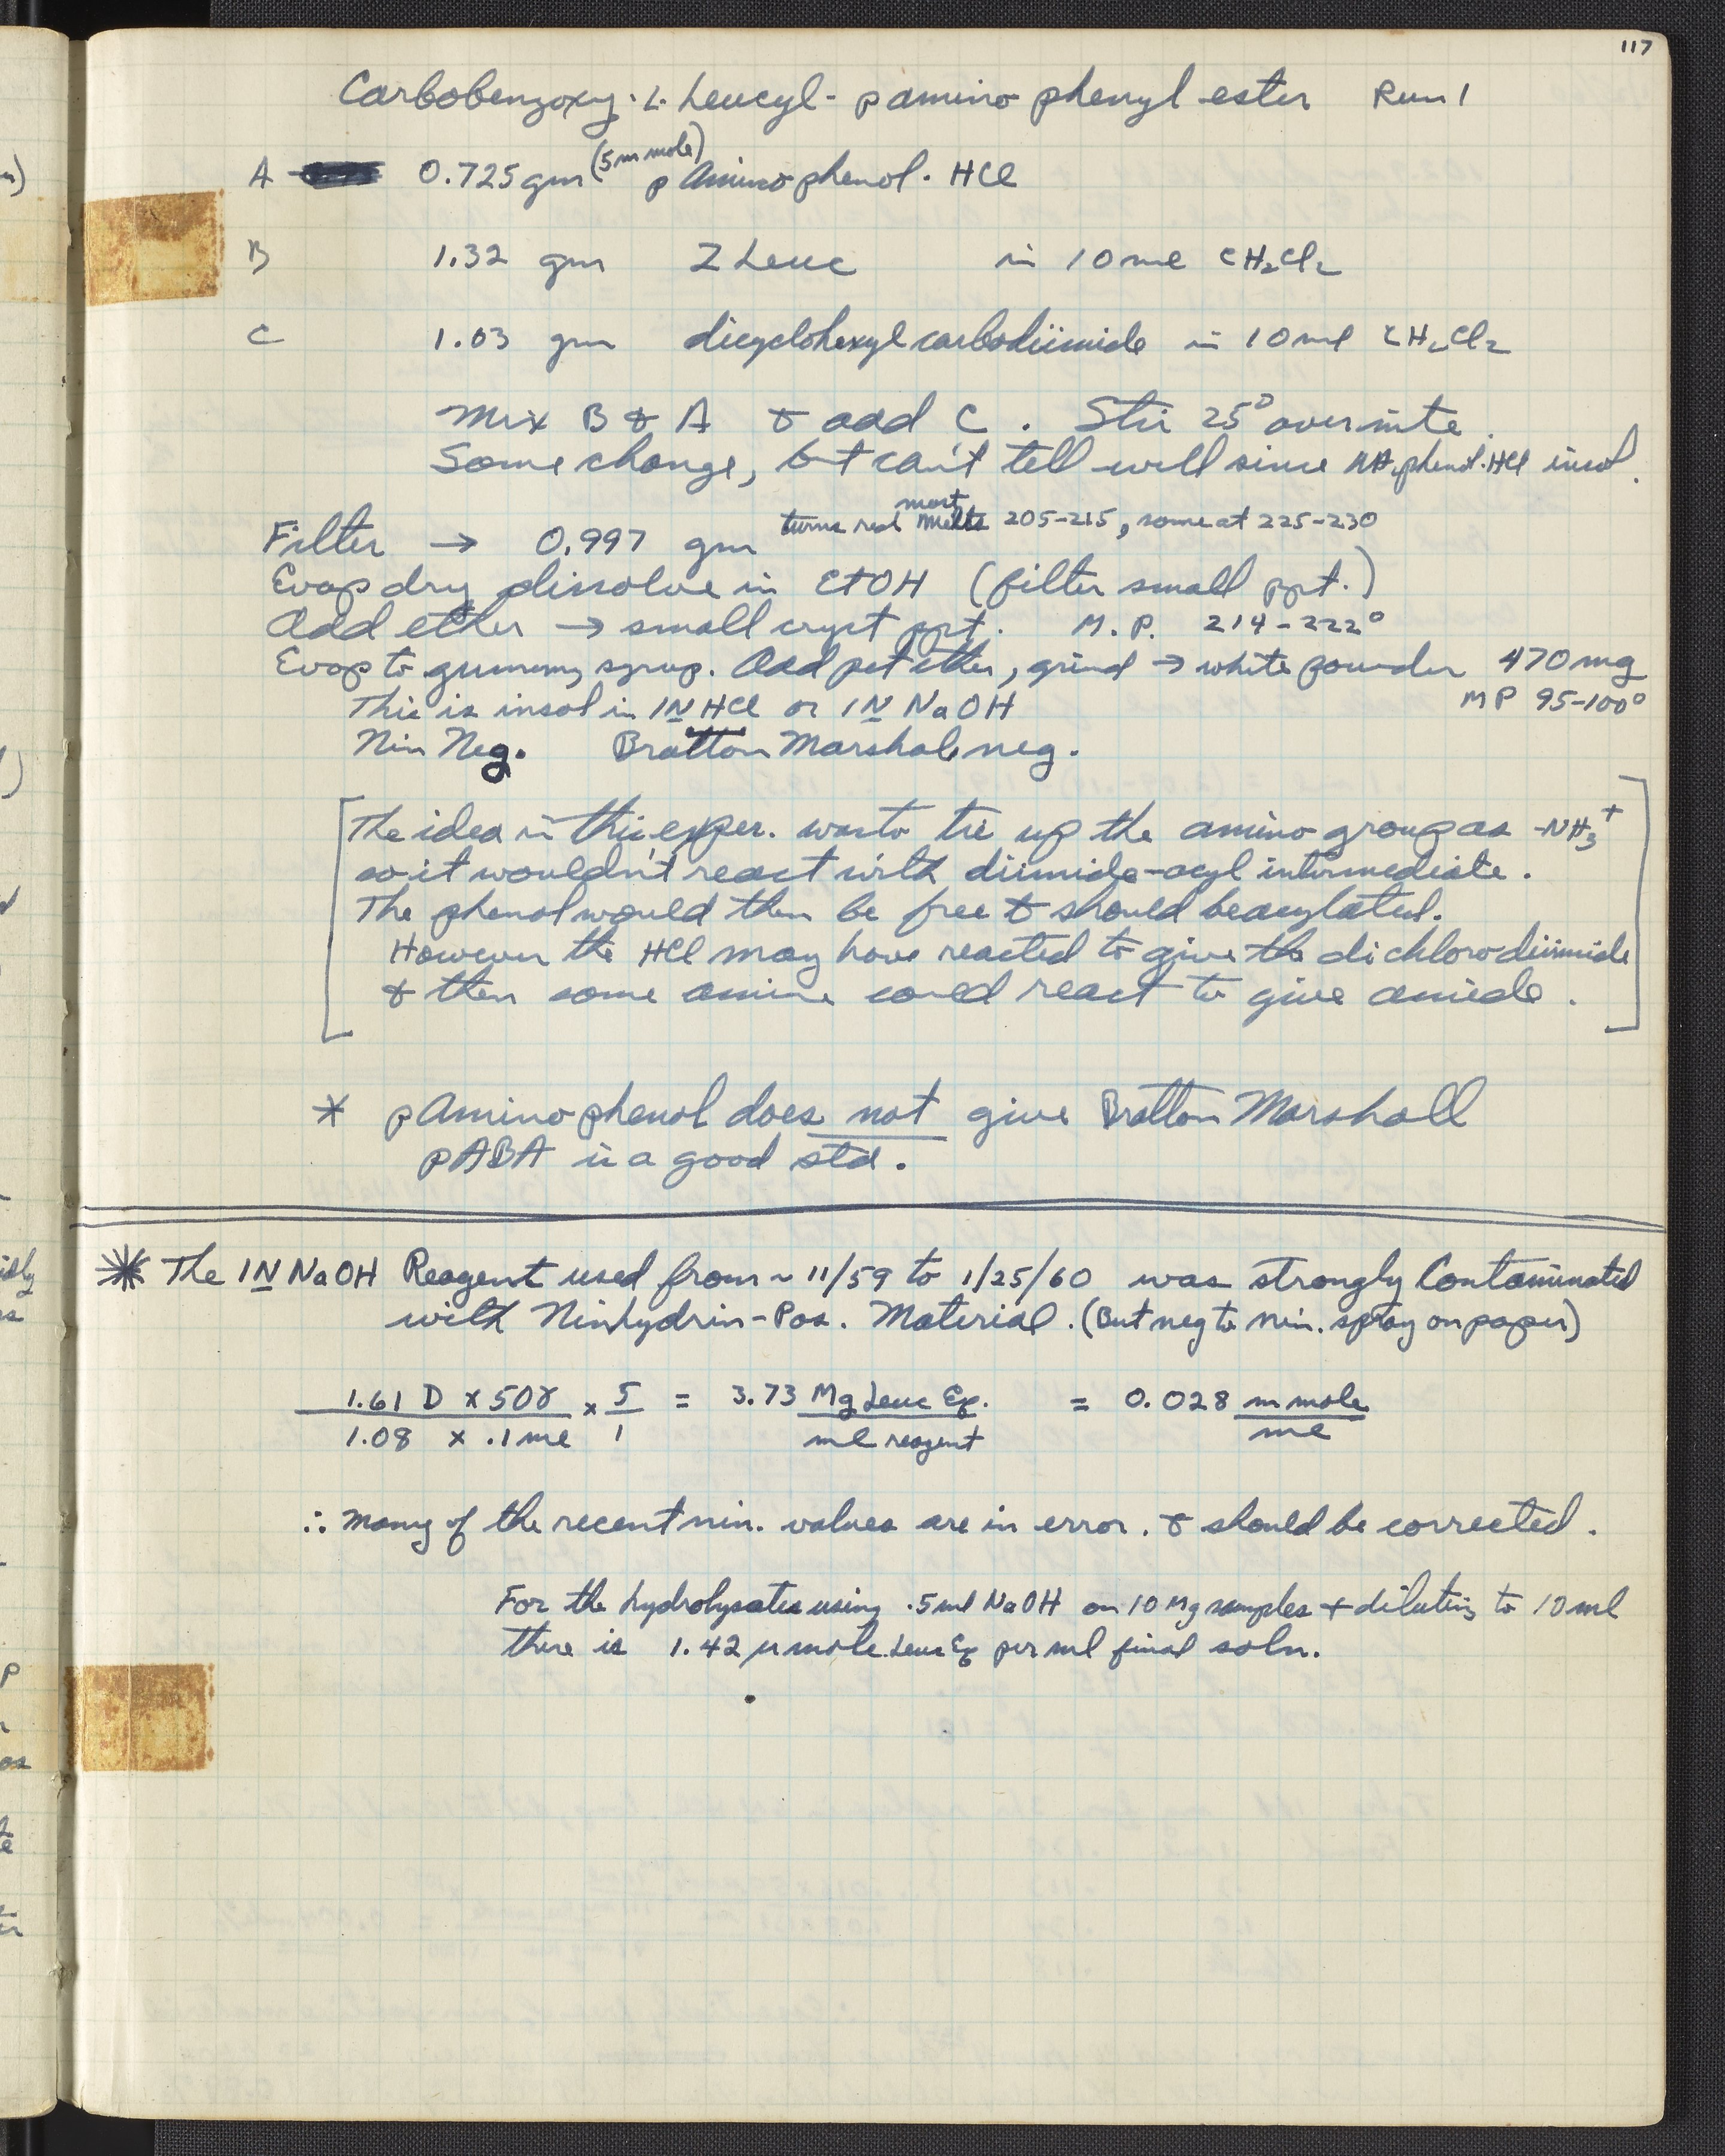 117
Carbobenzoxy-L-Leucyl-p amino phenyl ester Run 1
A 0.725 gm (5 m mole) p Aminophenol · HCl
B 1.32 gm Z Leuc in 10 ml CH2Cl2
C 1.03 gm dicyclohexylcarbodiimide in 10 ml CH2Cl2
Mix B & A & add C. Stir 25° overnite.
Some change, but can't tell well since NH2phenol·HCl insol.
turns red most melts 205-215, some at 225-230
Filter → 0.997 gm
Evap dry dissolve in EtOH (filter small ppt.)
Add ether → small cryst ppt. M.P. 214-222°
Evap to gummy syrup. Add pet ether, grind → white powder 470 mg
MP 95-100°
This is insol in 1N HCl or 1N NaOH
Nin Neg. Bratton Marshal neg.
[The idea in this exper. was to tie up the amino group as -NH3+
so it wouldn't react with diimide-acyl intermediate.
The phenol would then be free & should be acylated.
However the HCl may have reacted to give the dichlorodiimide
& then some amine could react to give amide.]
* pAminophenol does not give Bratton Marshall
pABA is a good std.
* The 1N NaOH Reagent used from ~ 11/59 to 1/25/60 was strongly Contaminated
with Ninhydrin-Pos. Material. (But neg to nin. spray on paper)
1.61 D x 50γ / 1.08 x .1 ml x 5/1 = 3.73 Mg Leuc Eq. / ml reagent = 0.028 m mole / ml
∴ many of the recent nin. values are in error. & should be corrected.
For the hydrolysates using .5 ml NaOH on 10 Mg samples + diluting to 10 ml
there is 1.42 μ mole Leuc Eq per ml final soln.